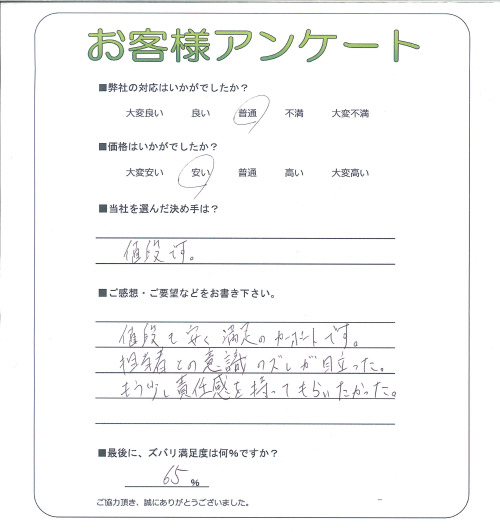 お客様アンケート
■弊社の対応はいかがでしたか？
大変良い 良い 普通 不満 大変不満
■価格はいかがでしたか？
大変安い 安い 普通 高い 大変高い
■当社を選んだ決め手は？
値段です。
■ご感想・ご要望などをお書き下さい。
値段も安く満足のカーポートです。
担当者との意識のズレが目立った。
もう少し責任感を持ってもらいたかった。
■最後に、ズバリ満足度は何％ですか？
65 ％
ご協力頂き、誠にありがとうございました。